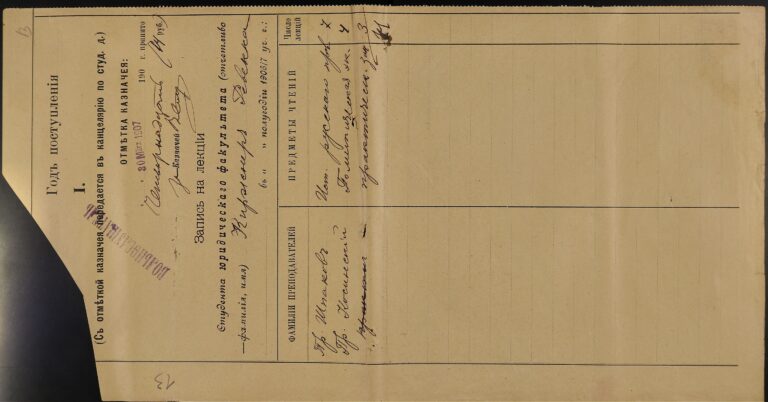 13
Годъ поступленія
I.
(Съ отмѣткой казначея передается въ канцелярію по студ. д.)
ОТМѢТКА КАЗНАЧЕЯ:
1907
190 г. принято
Четырнадцать (14 руб.)
Казначей
Запись на лекціи
Студента юридическаго факультета (отчетливо
—фамилія, имя) Киржнеръ Ревекка
въ „ „ полугодіи 1906/7 уч. г.:
ФАМИЛІИ ПРЕПОДАВАТЕЛЕЙ
ПРЕДМЕТЫ ЧТЕНІЙ
Число лекцій
Пр. Шпаковъ
Ист. русского пр. 7
Пр. Косинскій
Политическая эк. 4
практическ. зан. 3
14
13